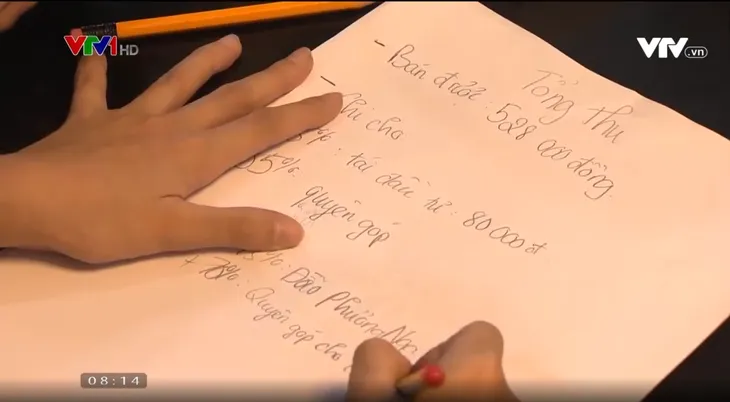 VTV1 HD
VTV.vn
Tổng thu
- Bán được: 528 000 đồng.
- Chi cho
%: tái đầu tư: 80 000 đ
5%.
quyên góp
%: Đào Phương
+ 78%: Quyên góp cho
08:14